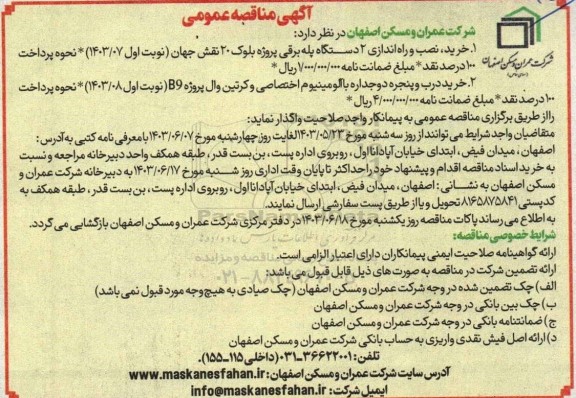 آگهی مناقصه عمومی
شرکت عمران و مسکن اصفهان
(سهامی خاص)
شرکت عمران و مسکن اصفهان در نظر دارد:
۱. خرید، نصب و راه اندازی ۲ دستگاه پله برقی پروژه بلوک ۲۰ نقش جهان (نوبت اول ۱۴۰۳/۰۷) * نحوه پرداخت
۱۰۰ درصد نقد * مبلغ ضمانت نامه ۷/۰۰۰/۰۰۰/۰۰۰ ریال *
۲. خرید درب و پنجره دوجداره با آلومینیوم اختصاصی و کرتین وال پروژه B9 (نوبت اول ۱۴۰۳/۰۸) * نحوه پرداخت
۱۰۰ درصد نقد * مبلغ ضمانت نامه ۴/۰۰۰/۰۰۰/۰۰۰ ریال *
را از طریق برگزاری مناقصه عمومی به پیمانکار واجد صلاحیت واگذار نماید:
متقاضیان واجد شرایط می توانند از روز سه شنبه مورخ ۱۴۰۳/۰۵/۲۳ لغایت روز چهارشنبه مورخ ۱۴۰۳/۰۶/۰۷ با معرفی نامه کتبی به آدرس:
اصفهان، میدان فیض، ابتدای خیابان آپادانا اول، روبروی اداره پست، بن بست قدر، طبقه همکف واحد دبیرخانه مراجعه و نسبت
به خرید اسناد مناقصه اقدام و پیشنهاد خود را حداکثر تا پایان وقت اداری روز شنبه مورخ ۱۴۰۳/۰۶/۱۷ به دبیرخانه شرکت عمران و
مسکن اصفهان به نشانی: اصفهان، میدان فیض، ابتدای خیابان آپادانا اول، روبروی اداره پست، بن بست قدر، طبقه همکف به
کدپستی ۸۱۶۵۸۷۵۸۴۱ تحویل و یا از طریق پست سفارشی ارسال نمایند.
به اطلاع می رساند پاکات مناقصه روز یکشنبه مورخ ۱۴۰۳/۰۶/۱۸ در دفتر مرکزی شرکت عمران و مسکن اصفهان بازگشایی می گردد.
شرایط خصوصی مناقصه:
ارائه گواهینامه صلاحیت ایمنی پیمانکاران دارای اعتبار الزامی است
ارائه تضمین شرکت در مناقصه به صورت های ذیل قابل قبول می باشد:
الف) چک تضمین شده در وجه شرکت عمران و مسکن اصفهان (چک صیادی به هیچ وجه مورد قبول نمی باشد)
ب) چک بین بانکی در وجه شرکت عمران و مسکن اصفهان
ج) ضمانتنامه بانکی در وجه شرکت عمران و مسکن اصفهان
د) ارائه اصل فیش نقدی واریزی به حساب بانکی شرکت عمران و مسکن اصفهان
تلفن: ۳۶۶۲۲۰۰۱-۰۳۱ (داخلی ۱۱۵-۱۵۵).
آدرس سایت شرکت عمران و مسکن اصفهان: www.maskanesfahan.ir
ایمیل شرکت: info@maskanesfahan.ir